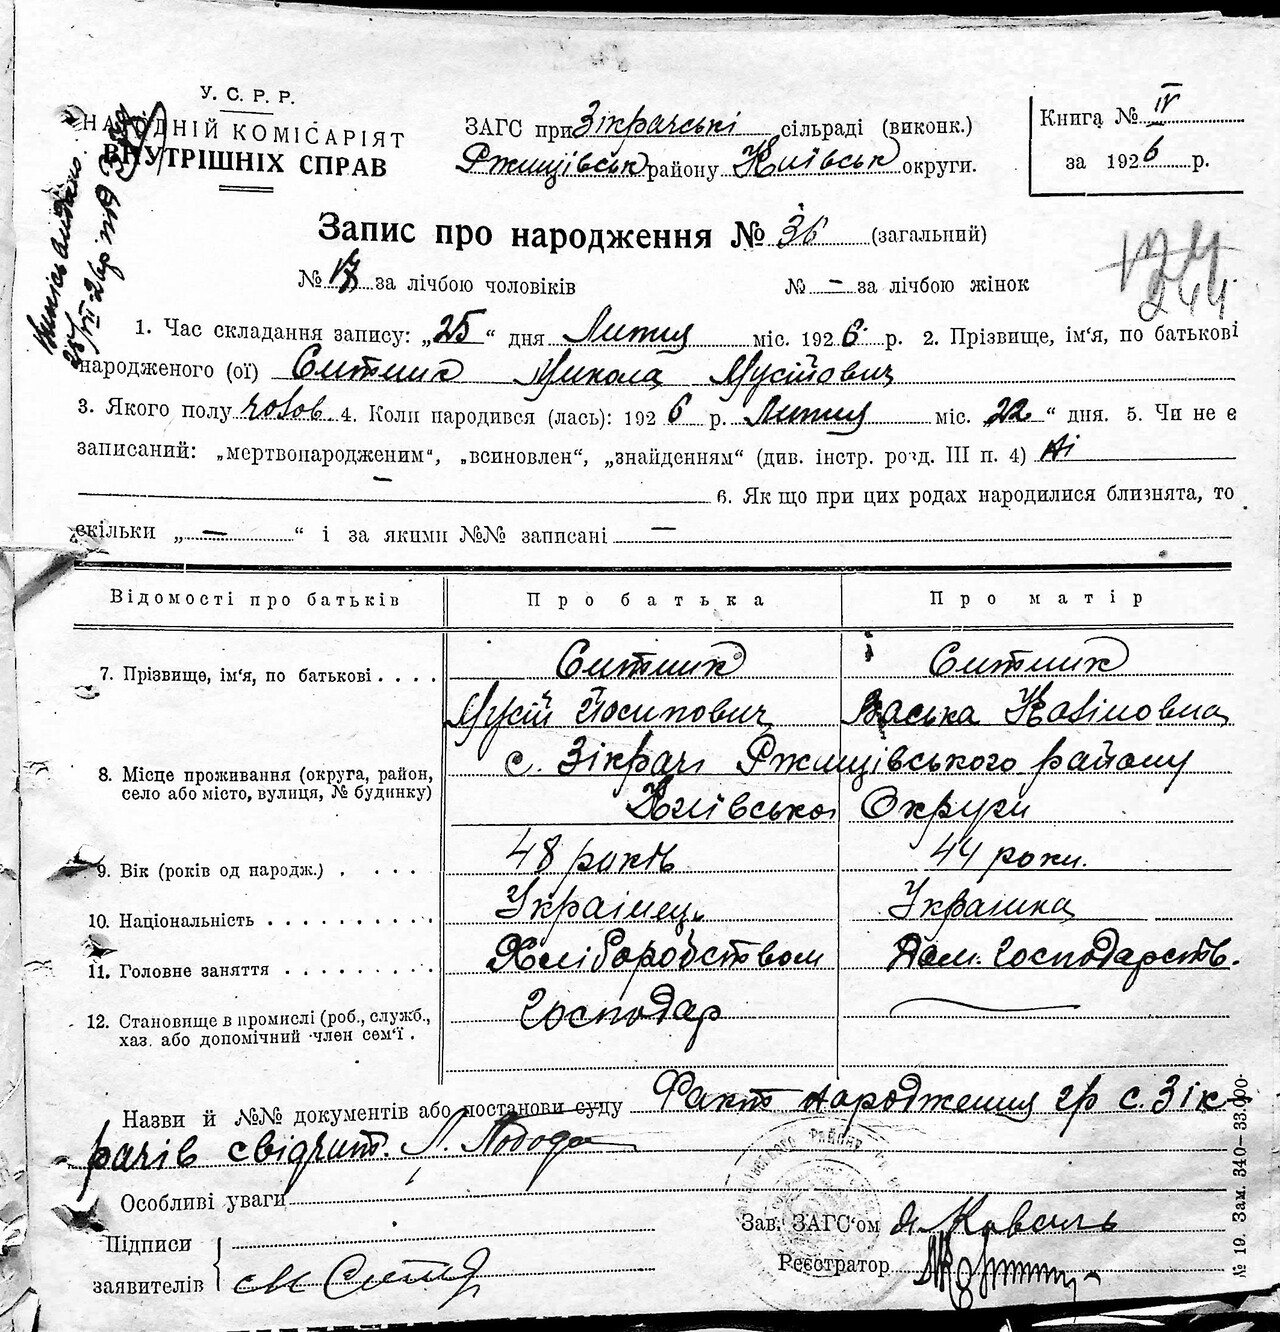 У. С. Р. Р.
НАРОДНІЙ КОМІСАРІЯТ
ВНУТРІШНІХ СПРАВ
ЗАГС при Зікрачські сільраді (виконк.)
Ржищівськ району Київськ округи.
Книга № IV
за 1926 р.
Запис про народження № 36 (загальний)
№ 17 за лічбою чоловіків № — за лічбою жінок
1. Час складання запису: „25“ дня Липня міс. 1926 р. 2. Прізвище, ім'я, по батькові
народженого (ої) Ситник Микола Мусійович
3. Якого полу чолов. 4. Коли народився (лась): 1926 р. Липня міс. 22 “ дня. 5. Чи не є
записаний: „мертвонародженим“, „всиновлен“, „знайденням“ (див. інстр. розд. III п. 4) Ні
— 6. Як що при цих родах народилися близнята, то
скільки „ — “ і за якими №№ записані —
Відомості про батьків Про батька Про матір
7. Прізвище, ім'я, по батькові . . . . Ситник Ситник
Мусій Йосипович Васька
8. Місце проживання (округа, район, село або місто, вулиця, № будинку) с. Зікрачі Ржищівського району
Київської Округи
9. Вік (років од народж.) . . . . . 48 років 44 роки.
10. Національність . . . . . . . . . . Українець Українка
11. Головне заняття . . . . . . . . . Хліборобством Дом. Господарств.
12. Становище в промислі (роб., службов., хаз. або допомічний член сем'ї . Господар —
Назви й №№ документів або постанови суду Факт народження гр с. Зік-
рачів свідчит. Л. Лобода
Особливі уваги
Підписи
заявителів
Зав. ЗАГС'ом Коваль
Реєстратор
№ 19. Зам. 340—33.000.
244